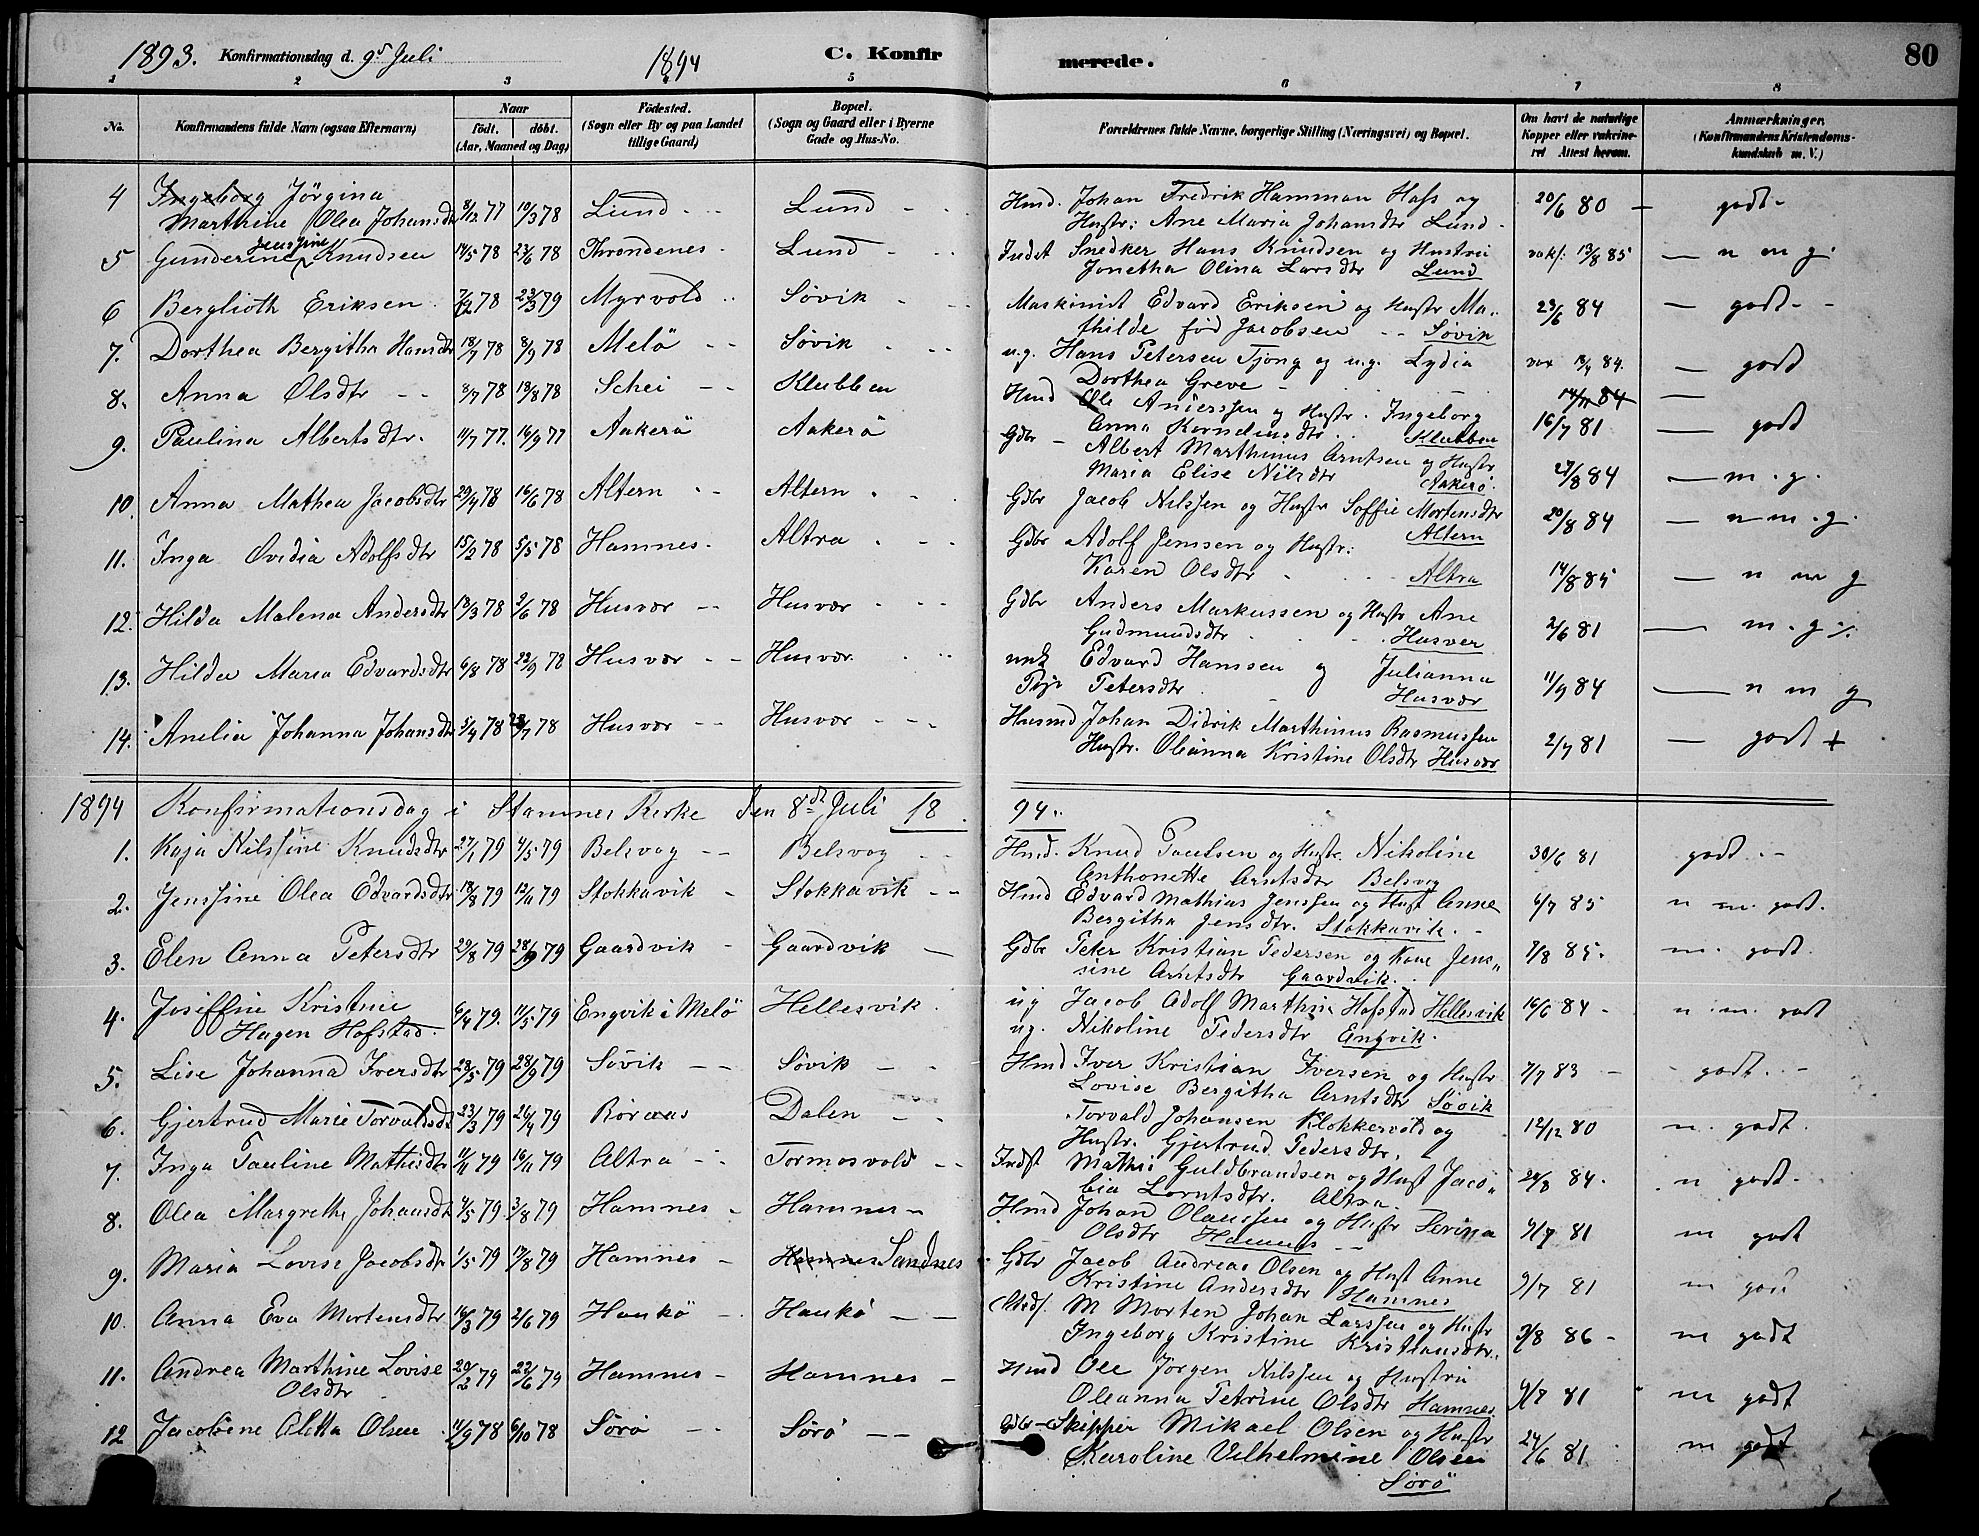 1893. Konfirmationsdag d. 9de Juli 1894 C. Konfirmerede. 80
1 2 3 5 6 7 8
No. Konfirmandens fulde Navn (ogsaa Efternavn) Naar født. døbt. (Aar, Maaned og Dag) Fødested. (Sogn eller By og paa Landet tillige Gaard) Bopæl. (Sogn og Gaard eller i Byerne Gade og Hus-No. Forældrenes fulde Navne, borgerlige Stilling (Næringsvei) og Bopæl. Om havt de naturlige Kopper eller vakcineret Attest herom. Anmærkninger. (Konfirmandens Kristendomskundskab m. V.)
4 Ingeborg Jörgina Hmd. Johan Fredrik Hamman Hass og
Marthine Olea Johansdtr 8/12 77 10/3 78 Lund Lund Hustr: Ane Maria Johansdtr Lund 20/6 80 — godt
5 Gunderine Jenssine Knudsen 14/5 78 23/6 78 Throndenes Lund Indst Snedker Hans Knudsen og Hustru vak. 13/8 85 — n m g.
Jonetha Olina Larsdtr Lund
6 Berglioth Eriksen 7/12 78 23/3 79 Myrvold Søvik Maskinist Edvard Eriksen og Hustr Ma- 23/6 84 — godt
thilde fød Jacobsen Søvik
7. Dorthea Bergitha Hansdtr 18/7 78 8/9 78 Melö Søvik u.g. Hans Petersen Tjong og u.g. Lydia vax 13/9 84. — godt
Dorthea Greve
8. Anna Olsdtr 8/7 78 18/8 78 Schei Klubben Hmd Ole Anderssen og Hustr. Ingeborg 14/11 84 —
Anna Korneliusdtr Klubben 16/7 81 — godt
9. Paulina Albertsdtr. 11/7 77. 16/9 77 Aakerö Aakerö Gdbr Albert Marthinus Arntsen og Hustr
Maria Elise Nilsdtr Aakerö. 27/8 84 — m. g.
10. Anna Mathea Jacobsdtr 29/4 78 16/6 78 Altern Altern Gdbr Jacob Nilssen og Hustr Soffie Mortensdtr 20/8 84 — n m. g.
Altern
11. Inga Ovidia Adolfsdtr 15/2 78 5/5 78 Hamnes Altra Gdbr Adolf Jenssen og Hustr:
Karen Olsdtr Altra 14/8 85 — n m g
12. Hilda Malena Andersdtr 13/3 78 2/6 78 Husvær Husvær Gdbr Anders Markussen og Hustr Ane
Gudmundsdtr Husver 2/6 81 — m. g.
13. Hilda Maria Edvardsdtr 6/8 78 22/9 78 Husvær Husvær Edvard Hanssen og Julianna
Petersdtr Husvær 11/9 84 — n m g
14. Anelia Johanna Johansdtr 3/4 78 28/7 78 Husvær Husvær Husmd Johan Didrik Marthinus Rasmussen
Hustr. Oleanna Kristine Olsdtr Husvær 2/7 81 — godt +
1894 Konfirmationsdag i Stamnes Kirke den 8de Juli 1894.
1. Kaja Nilssine Knudsdtr 27/1 79 4/5 79 Belsvog Belsvog Hmd. Knud Paulsen og Hustr. Nikoline 30/6 81 godt
Anthonette Arntsdtr Belsvog
2. Jenssine Olea Edvardsdtr 18/8 79 12/11 79 Stokkavik Stokkavik Hmd Edvard Mathias Jenssen og Hust Anne 6/7 85 n m. godt.
Bergitha Jensdtr. Stokkavik.
3. Elen Anna Petersdtr 29/8 79 28/9 79 Gaardvik Gaardvik Gdbr Peter Kristian Pedersen og Kone Jens- 7/8 85. m. godt.
sine Arntsdtr Gaardvik.
4. Josiffine Kristine Hagen Hofstad 6/4 79. 11/5 79 Engvik i Melö Hellesvik ug Jacob Adolf Marthin Hofstad Hellesvik 16/6 84 n. m. godt
ug. Nikoline Pedersdtr Engvik.
5. Lise Johanna Iversdtr 28/5 79 28/9 79 Søvik Søvik Hmd Iver Kristian Iversen og Hustr 7/7 83 godt.
Lovise Bergitha Arntsdtr Søvik
6. Gjertrud Marie Torvaldsdtr 23/3 79 26/4 79 Röraas Dalen Torvald Johansen Klokkervold og 12/12 80 n. godt.
Hustr. Gjertrud Pedersdtr.
7. Inga Pauline Mathisdtr 11/11 79 16/11 79 Altra Tormosvold Indst Mathis Guldbrandsen og Hust Jaco- 24/8 84. n godt.
bia Lorntsdtr. Altra.
8. Olea Margrethe Johansdtr 4/5 79 3/8 79 Hamnes Hamnes Hmd Johan Olaussen og Hustr Serina
Olsdtr Hamnes 9/7 81 m godt
9. Maria Lovise Jacobsdtr 1/5 79 17/8 79 Hamnes Hamnes Sandnes Gdbr Jacob Andreas Olsen og Hust Anne
Kristine Andersdtr Hamnes 9/7 81 m godt
10. Anna Eva Mortensdtr 16/3 79 2/6 79 Haukö Haukö M Morten Johan Larssen og Hustr
Ingeborg Kristine Kristiansdtr. 3/8 86 m godt
11. Andrea Marthine Lovise 20/2 79 22/6 79 Hamnes Hamnes Hmd Ole Jørgen Nilssen og Hustru
Olsdtr Oleanna Petrine Olsdtr Hamnes 9/7 81 m godt
12 Jacobine Aletta Olsen 11/9 78 6/10 78 Sørø Sørø Gdbr Skipper Mikael Olsen og Hustr
Karoline Vilhelmine Olsen 24/6 81 m godt
Sørö